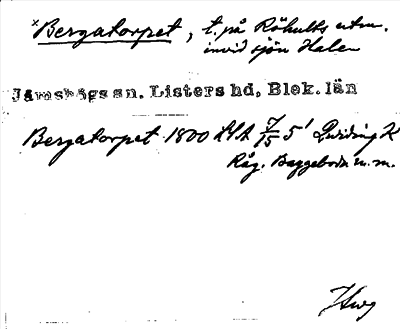 × Bergatorpet, t. på Röhults utm.
invid sjön Halen
Jämshögs sn. Listers hd, Blek. län
Bergatorpet 1800 LSA 7/5 5' Qviding K
Råg. Baggeboda m.m.